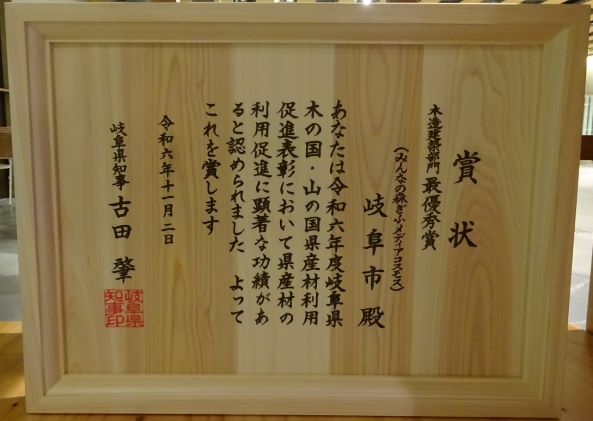 賞状
木造建築部門 最優秀賞
(みんなの森ぎふメディアコスモス)
岐阜市 殿
あなたは令和六年度岐阜県
木の国・山の国県産材利用
促進表彰において県産材の
利用促進に顕著な功績があ
ると認められました よって
これを賞します
令和六年十一月二日
岐阜県知事 古田 肇
岐阜県
知事印